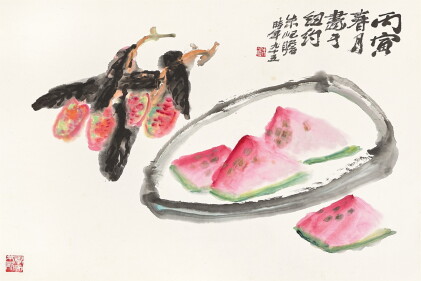 丙寅
春月
畫于
紐約
朱屺瞻
時年九十五